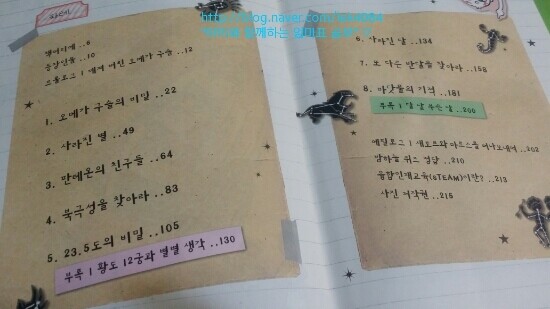 차례
등장인물 ..10
프롤로그 | 별이 버린 오메가 구슬 ..12
1. 오메가 구슬의 비밀 ..22
2. 사라진 별 ..49
3. 만데온의 친구들 ..64
4. 북극성을 찾아라 ..83
5. 23.5도의 비밀 ..105
부록 | 황도 12궁과 별별 생각 ..130
6. 사라진 달 ..134
7. 또 다른 반달을 찾아라 ..158
8. ..181
부록 | ..200
에필로그 | ..202
밤하늘 퀴즈 정답 ..210
융합인재교육(STEAM)이란? ..213
사진 저작권 ..215